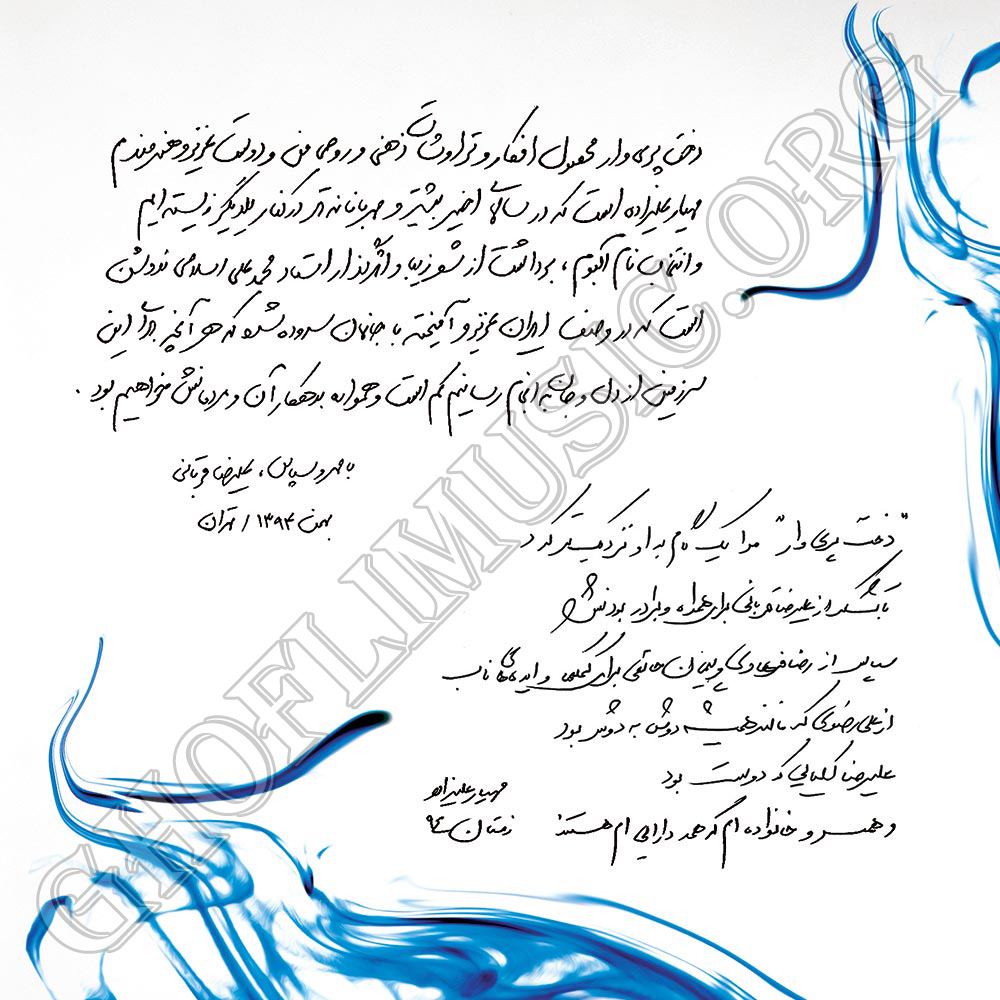 دخت پری وار محصول افکار و تراوشات ذهنی و روحی من و دوست عزیز و هنرمندم
مهیار علیزاده است که در سالهای اخیر بیشتر و مهربانانه‌تر در کنار یکدیگر زیسته‌ایم
و انتخاب نام آلبوم، برداشت از شعر زیبا و اثرگذار استاد محمد علی اسلامی ندوشن
است که در وصف ایران عزیز و آمیخته با جانمان سروده شد که هر آنچه برای این
سرزمین از دل و جان به انجام رسانیم کم است و همواره بدهکار آن و مردمانش خواهیم بود.
با مهر و سپاس، علیرضا قربانی
بهمن ۱۳۹۴ / تهران
"دخت پری وار" مرا یک گام به او نزدیکتر کرد
با تشکر از علیرضا قربانی برای همراه و برادر بودنش
سپاس از رضا فرهادی و پیمان خاتمی برای کمکها و ایده‌های ناب
از علی رضوی که مانند همیشه دوش به دوش بود
علیرضا گلبانی که دوست بود
و همسر و خانواده ام که همه دارایی ام هستند
مهیار علیزاده
زمستان ۹۴
GHOFLIMUSIC.ORG